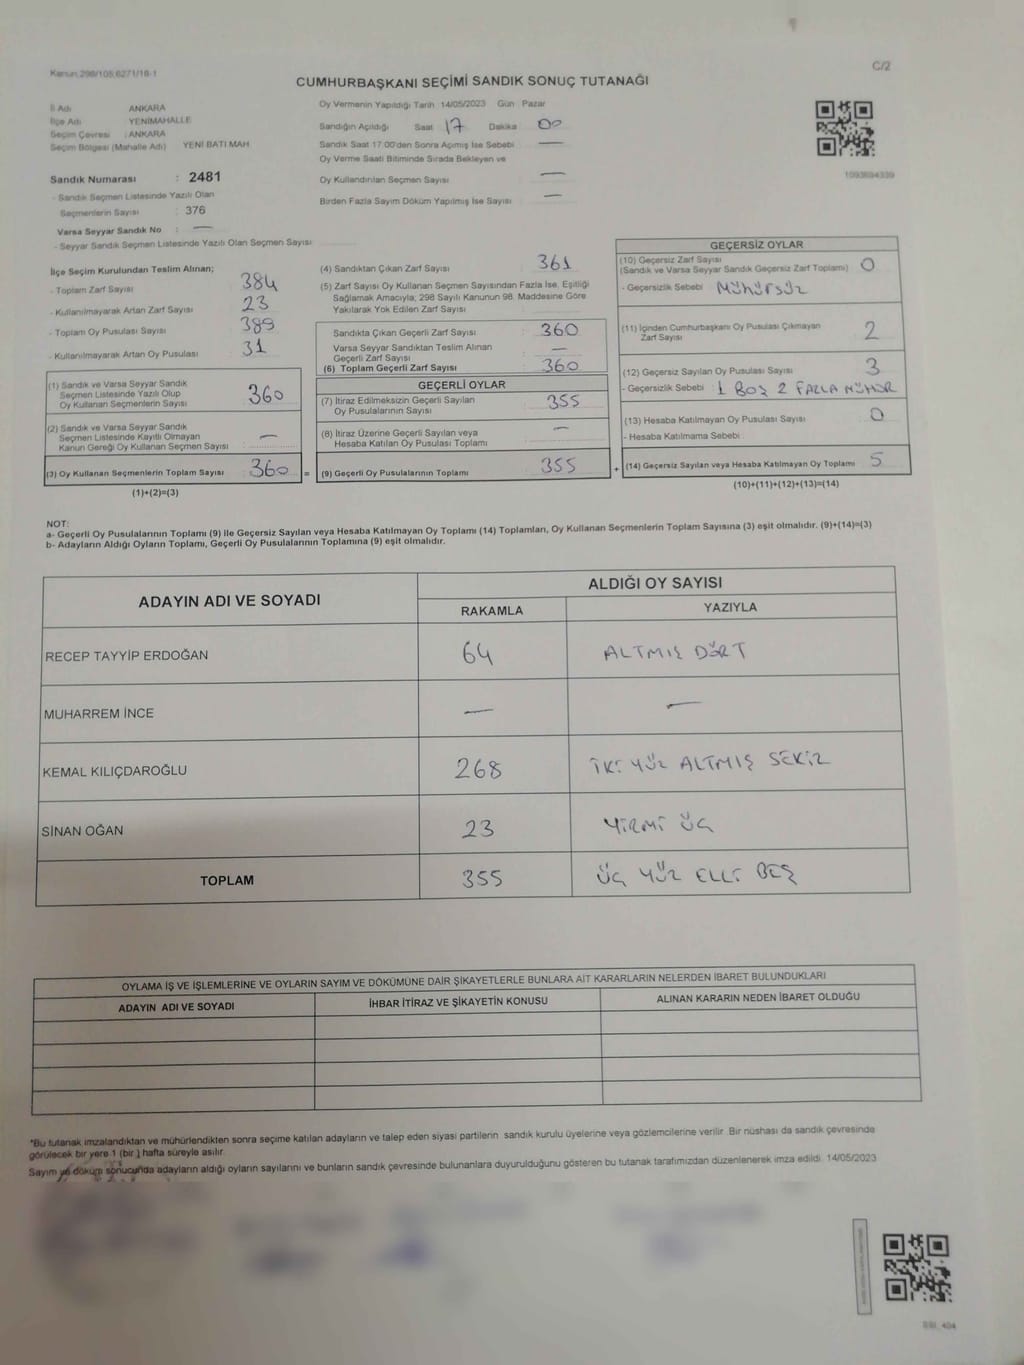 Kanun 298/105,6271/18-1
C/2
CUMHURBAŞKANI SEÇİMİ SANDIK SONUÇ TUTANAĞI
İl Adı ANKARA
İlçe Adı YENİMAHALLE
Seçim Çevresi : ANKARA
Seçim Bölgesi (Mahalle Adı) YENİ BATI MAH
Sandık Numarası : 2481
- Sandık Seçmen Listesinde Yazılı Olan
Seçmenlerin Sayısı : 376
Varsa Seyyar Sandık No : —
- Seyyar Sandık Seçmen Listesinde Yazılı Olan Seçmen Sayısı
Oy Vermenin Yapıldığı Tarih 14/05/2023 Gün Pazar
Sandığın Açıldığı Saat 17 Dakika 00
Sandık Saat 17.00'den Sonra Açımış İse Sebebi —
Oy Verme Saati Bitiminde Sırada Bekleyen ve
Oy Kullandırılan Seçmen Sayısı —
Birden Fazla Sayım Döküm Yapılmış İse Sayısı —
1093694339
İlçe Seçim Kurulundan Teslim Alınan;
- Toplam Zarf Sayısı : 384
- Kullanılmayarak Artan Zarf Sayısı : 23
- Toplam Oy Pusulası Sayısı : 389
- Kullanılmayarak Artan Oy Pusulası : 31
(1) Sandık ve Varsa Seyyar Sandık
Seçmen Listesinde Yazılı Olup
Oy Kullanan Seçmenlerin Sayısı : 360
(2) Sandık ve Varsa Seyyar Sandık
Seçmen Listesinde Kayıtlı Olmayan
Kanun Gereği Oy Kullanan Seçmen Sayısı : —
(3) Oy Kullanan Seçmenlerin Toplam Sayısı : 360 =
(1)+(2)=(3)
(4) Sandıktan Çıkan Zarf Sayısı : 361
(5) Zarf Sayısı Oy Kullanan Seçmen Sayısından Fazla İse, Eşitliği
Sağlamak Amacıyla; 298 Sayılı Kanunun 98. Maddesine Göre
Yakılarak Yok Edilen Zarf Sayısı :
Sandıkta Çıkan Geçerli Zarf Sayısı : 360
Varsa Seyyar Sandıktan Teslim Alınan
Geçerli Zarf Sayısı : —
(6) Toplam Geçerli Zarf Sayısı : 360
GEÇERLİ OYLAR
(7) İtiraz Edilmeksizin Geçerli Sayılan
Oy Pusulalarının Sayısı : 355
(8) İtiraz Üzerine Geçerli Sayılan veya
Hesaba Katılan Oy Pusulası Toplamı : —
(9) Geçerli Oy Pusulalarının Toplamı : 355 +
GEÇERSİZ OYLAR
(10) Geçersiz Zarf Sayısı
(Sandık ve Varsa Seyyar Sandık Geçersiz Zarf Toplamı) : 0
- Geçersizlik Sebebi : MÜHÜRSÜZ
(11) İçinden Cumhurbaşkanı Oy Pusulası Çıkmayan
Zarf Sayısı : 2
(12) Geçersiz Sayılan Oy Pusulası Sayısı : 3
- Geçersizlik Sebebi : 1 BOŞ 2 FAZLA MÜHÜR
(13) Hesaba Katılmayan Oy Pusulası Sayısı : 0
- Hesaba Katılmama Sebebi :
(14) Geçersiz Sayılan veya Hesaba Katılmayan Oy Toplamı : 5
(10)+(11)+(12)+(13)=(14)
NOT:
a- Geçerli Oy Pusulalarının Toplamı (9) ile Geçersiz Sayılan veya Hesaba Katılmayan Oy Toplamı (14) Toplamları, Oy Kullanan Seçmenlerin Toplam Sayısına (3) eşit olmalıdır. (9)+(14)=(3)
b- Adayların Aldığı Oyların Toplamı, Geçerli Oy Pusulalarının Toplamına (9) eşit olmalıdır.
ADAYIN ADI VE SOYADI ALDIĞI OY SAYISI
RAKAMLA YAZIYLA
RECEP TAYYİP ERDOĞAN 64 ALTMIŞ DÖRT
MUHARREM İNCE — —
KEMAL KILIÇDAROĞLU 268 İKİ YÜZ ALTMIŞ SEKİZ
SİNAN OĞAN 23 YİRMİ ÜÇ
TOPLAM 355 ÜÇ YÜZ ELLİ BEŞ
OYLAMA İŞ VE İŞLEMLERİNE VE OYLARIN SAYIM VE DÖKÜMÜNE DAİR ŞİKAYETLERLE BUNLARA AİT KARARLARIN NELERDEN İBARET BULUNDUKLARI
ADAYIN ADI VE SOYADI İHBAR İTİRAZ VE ŞİKAYETİN KONUSU ALINAN KARARIN NEDEN İBARET OLDUĞU
*Bu tutanak imzalandıktan ve mühürlendikten sonra seçime katılan adayların ve talep eden siyasi partilerin sandık kurulu üyelerine veya gözlemcilerine verilir. Bir nüshası da sandık çevresinde
görülecek bir yere 1 (bir ) hafta süreyle asılır.
Sayım ve döküm sonucunda adayların aldığı oyların sayılarını ve bunların sandık çevresinde bulunanlara duyurulduğunu gösteren bu tutanak tarafımızdan düzenlenerek imza edildi. 14/05/2023